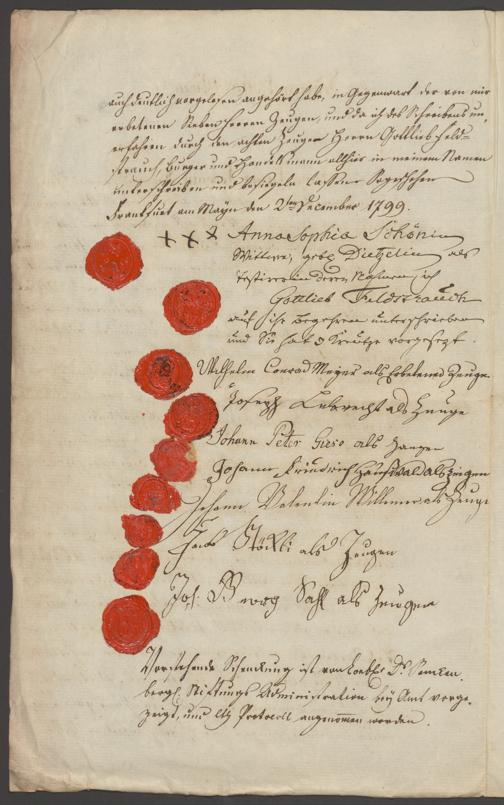 auch deutlich vorgelesen angehört habe, in Gegenwart der von mir
erbetenen Sieben Herren Zeugen, und da ich des Schreibens un,,
erfahren durch den achten Zeugen Herrn Gottlieb Feld-
strauch, Burger und Handelsmann allhier in meinem Namen
unterschreiben und besiegeln lassen. So geschehen
Frankfurt am Mayn den 2ten December 1799.
+++ Anna Sophia Schönin
Wittwe, geb. Dietzelin als
Testirerin in deren Namen ich
Gottlieb Feldstrauch
auf ihr Begehren unterschrieben
und Sie hat 3 Kreutze vorgesezt.
Wilhelm Conrad Meyer als Erbetener Zeuge
Joseph als Zeuge
Johann Peter als Zeugen
Johann Friedrich als Zeugen
Johann Valentin Willemer als Zeuge
Jacob Stöckli als Zeugen
Jos: als Zeugen
Vorstehende Schenckung ist von Dr. Sencken,,
berg. Stiftungs Administration bey Amt vorge,,
zeigt, und Protocoll angenommen worden.